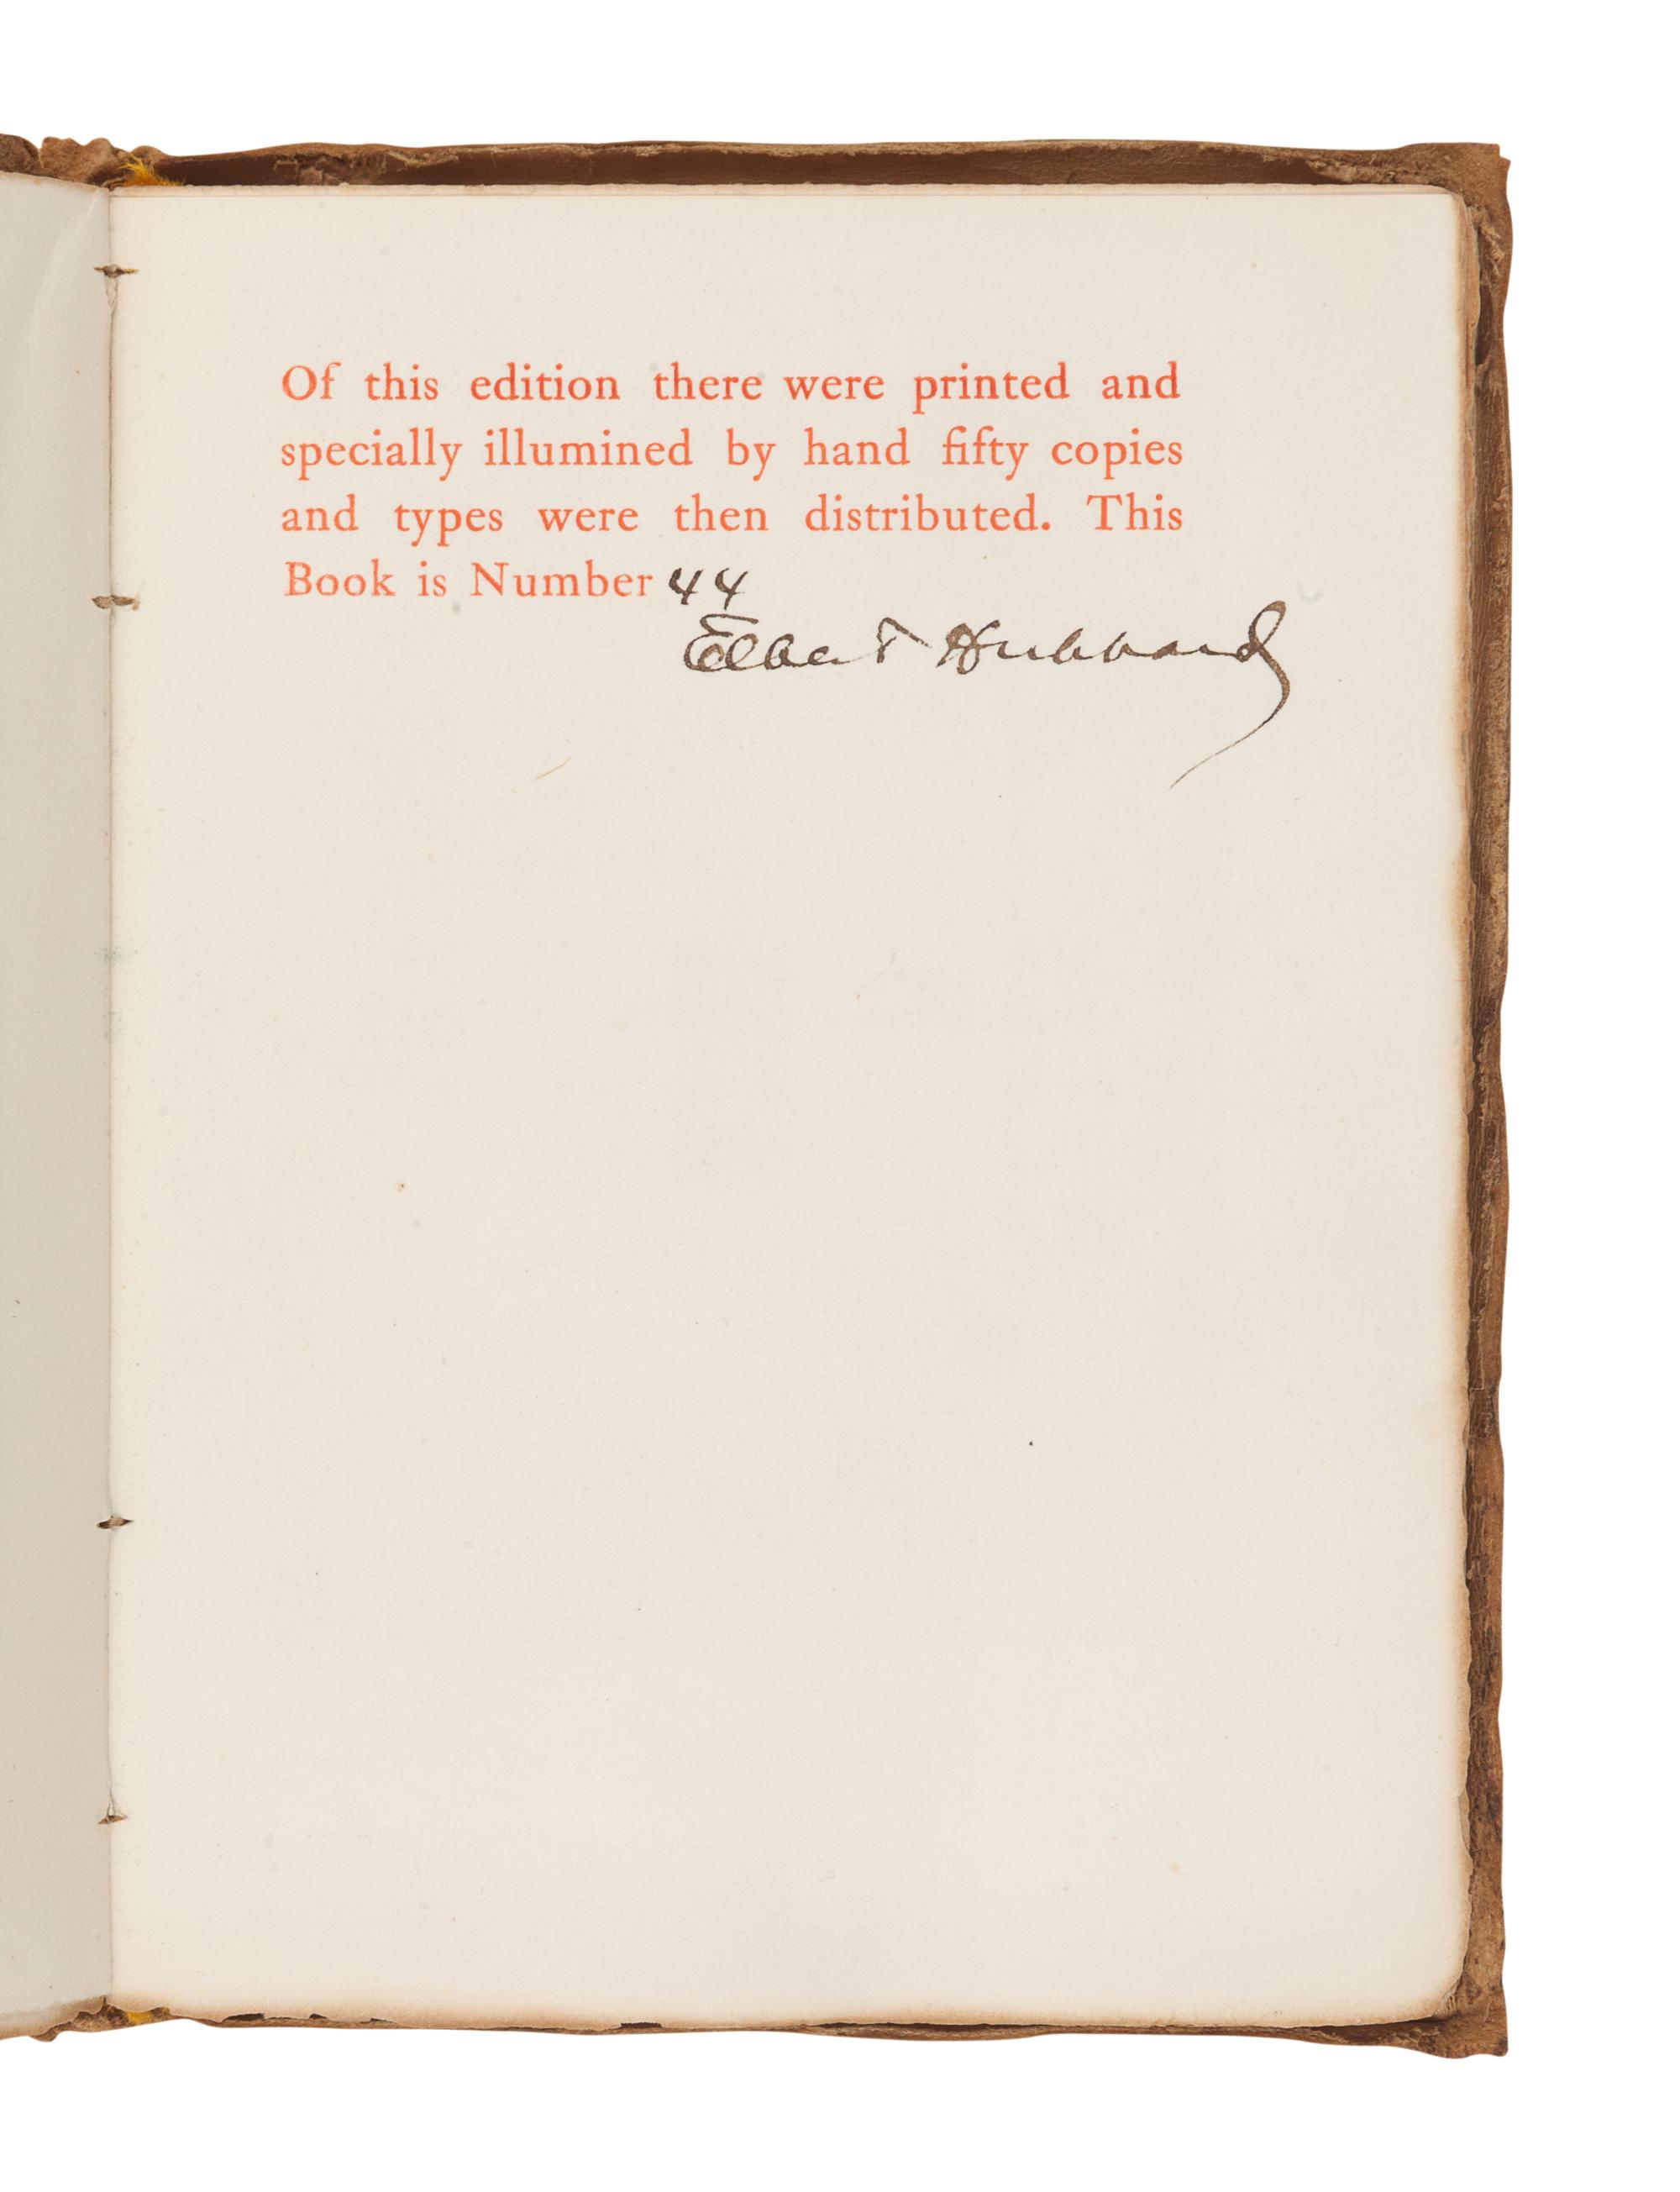 Of this edition there were printed and
specially illumined by hand fifty copies
and types were then distributed. This
Book is Number 44
Elbert Hubbard